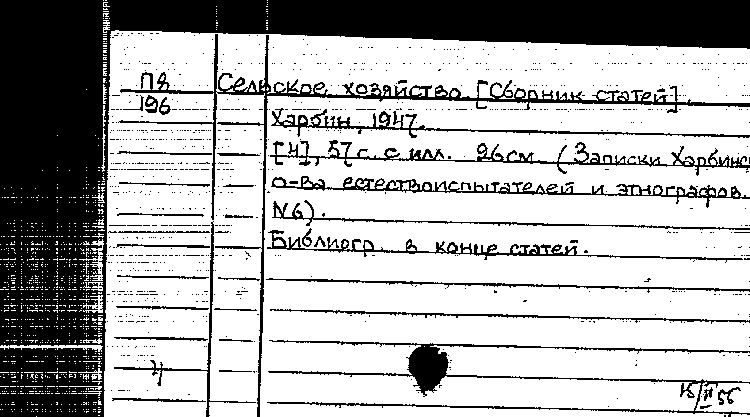 П8
196
Сельское хозяйство [Сборник статей].
Харбин, 1947.
[4], 57 с. с илл. 26см (Записки Харбинс
о-ва естествоиспытателей и этнографов.
N6).
Библиогр. в конце статей.
15/II 56